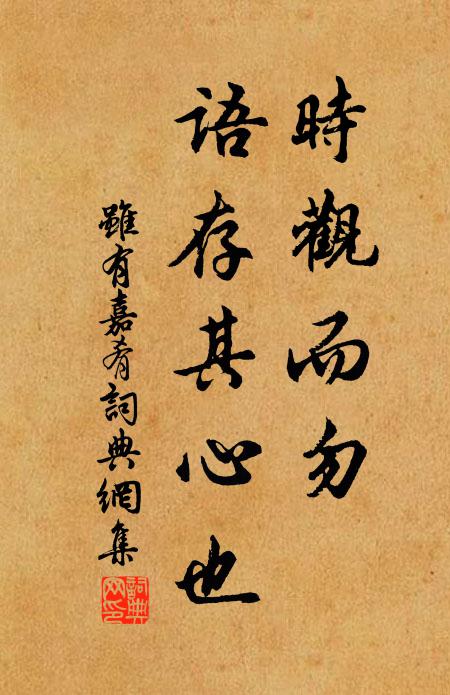 時觀而勿
語存其心也
雖有嘉肴詞典網集
詞典
网印